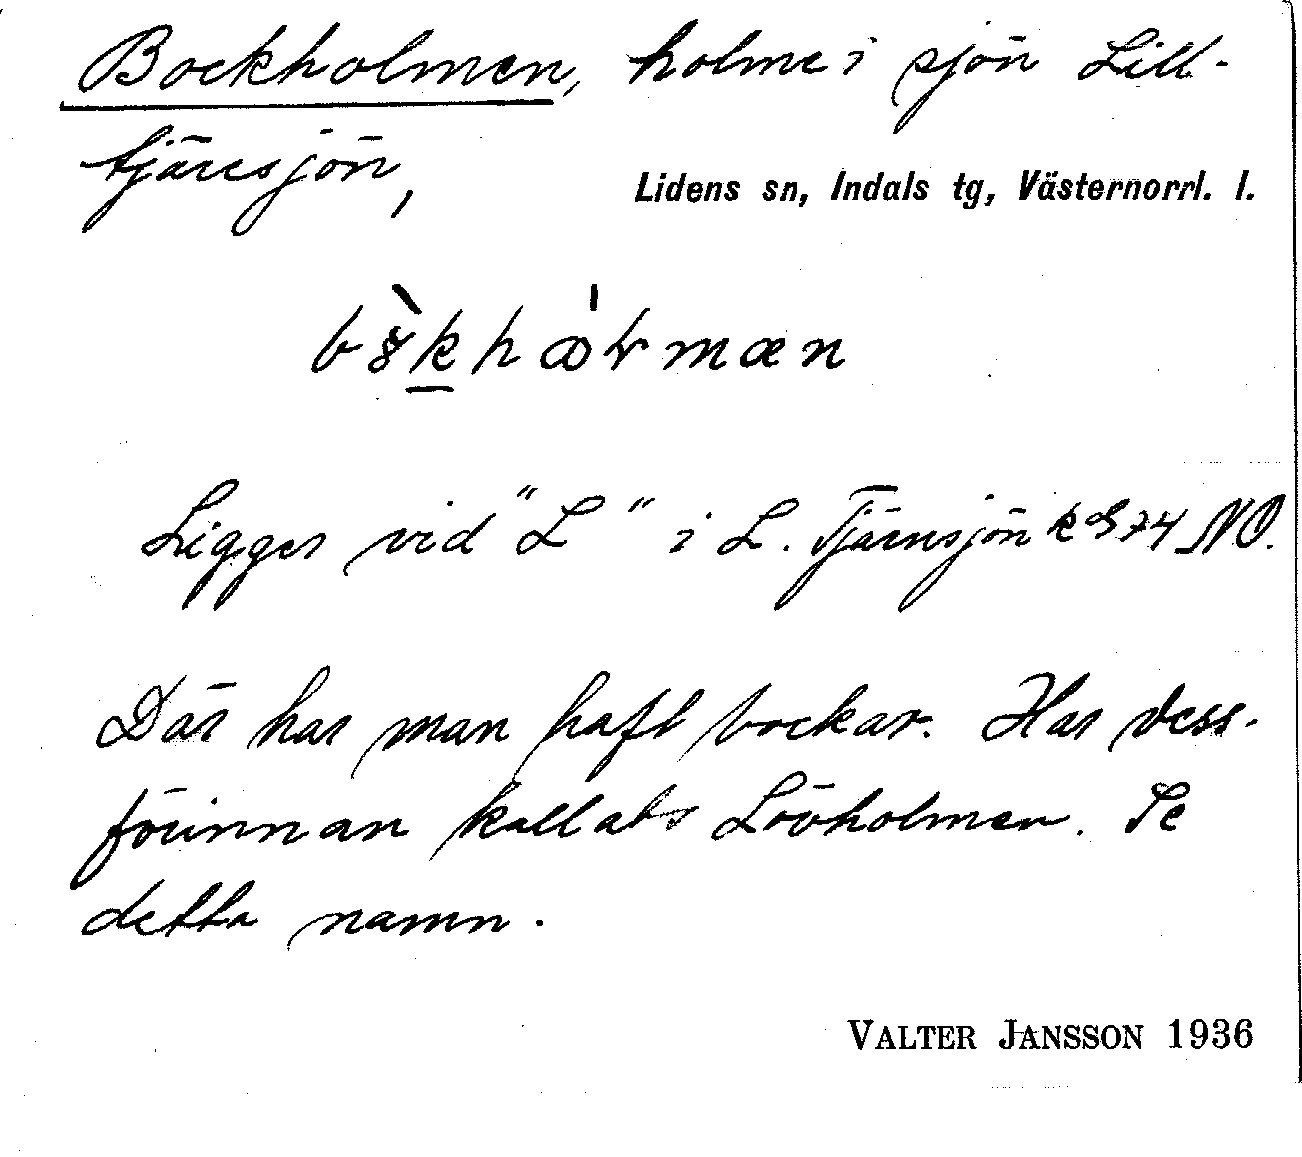 Bockholmen, holme i sjön Lill-
tjärnsjön,
Lidens sn, Indals tg, Västernorrl. l.
Ligger vid "L" i L. Tjärnsjön k S 74 NO.
Där har man haft bockar. Har dess-
förinnan kallats Lövholmen. Se
detta namn.
VALTER JANSSON 1936